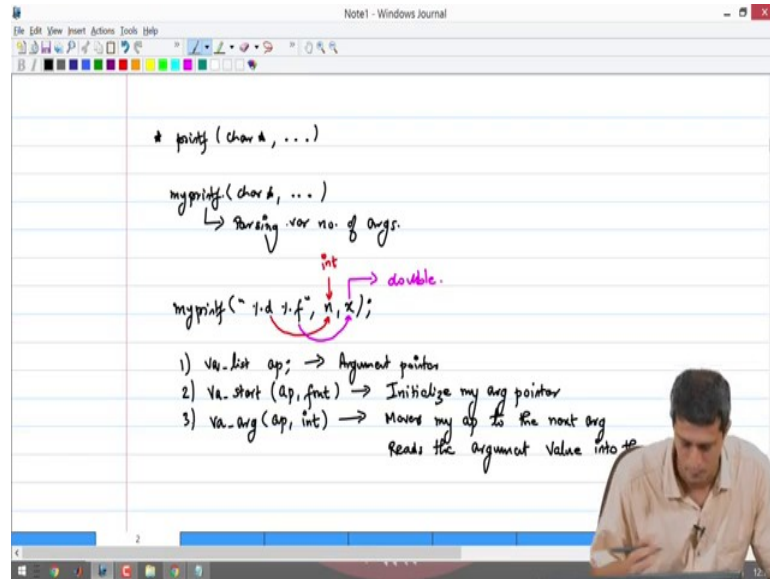 Note1 - Windows Journal
File Edit View Insert Actions Tools Help
* printf (char *, ...)
myprintf (char *, ...)
↳ Parsing var no. of args.
int
→ double.
myprintf (" %d %f", n, x);
1) va_list ap; → Argument pointer
2) va_start (ap, fmt) → Initialize my arg pointer
3) va_arg (ap, int) → Moves my ap to the next arg
Reads the argument value into
2